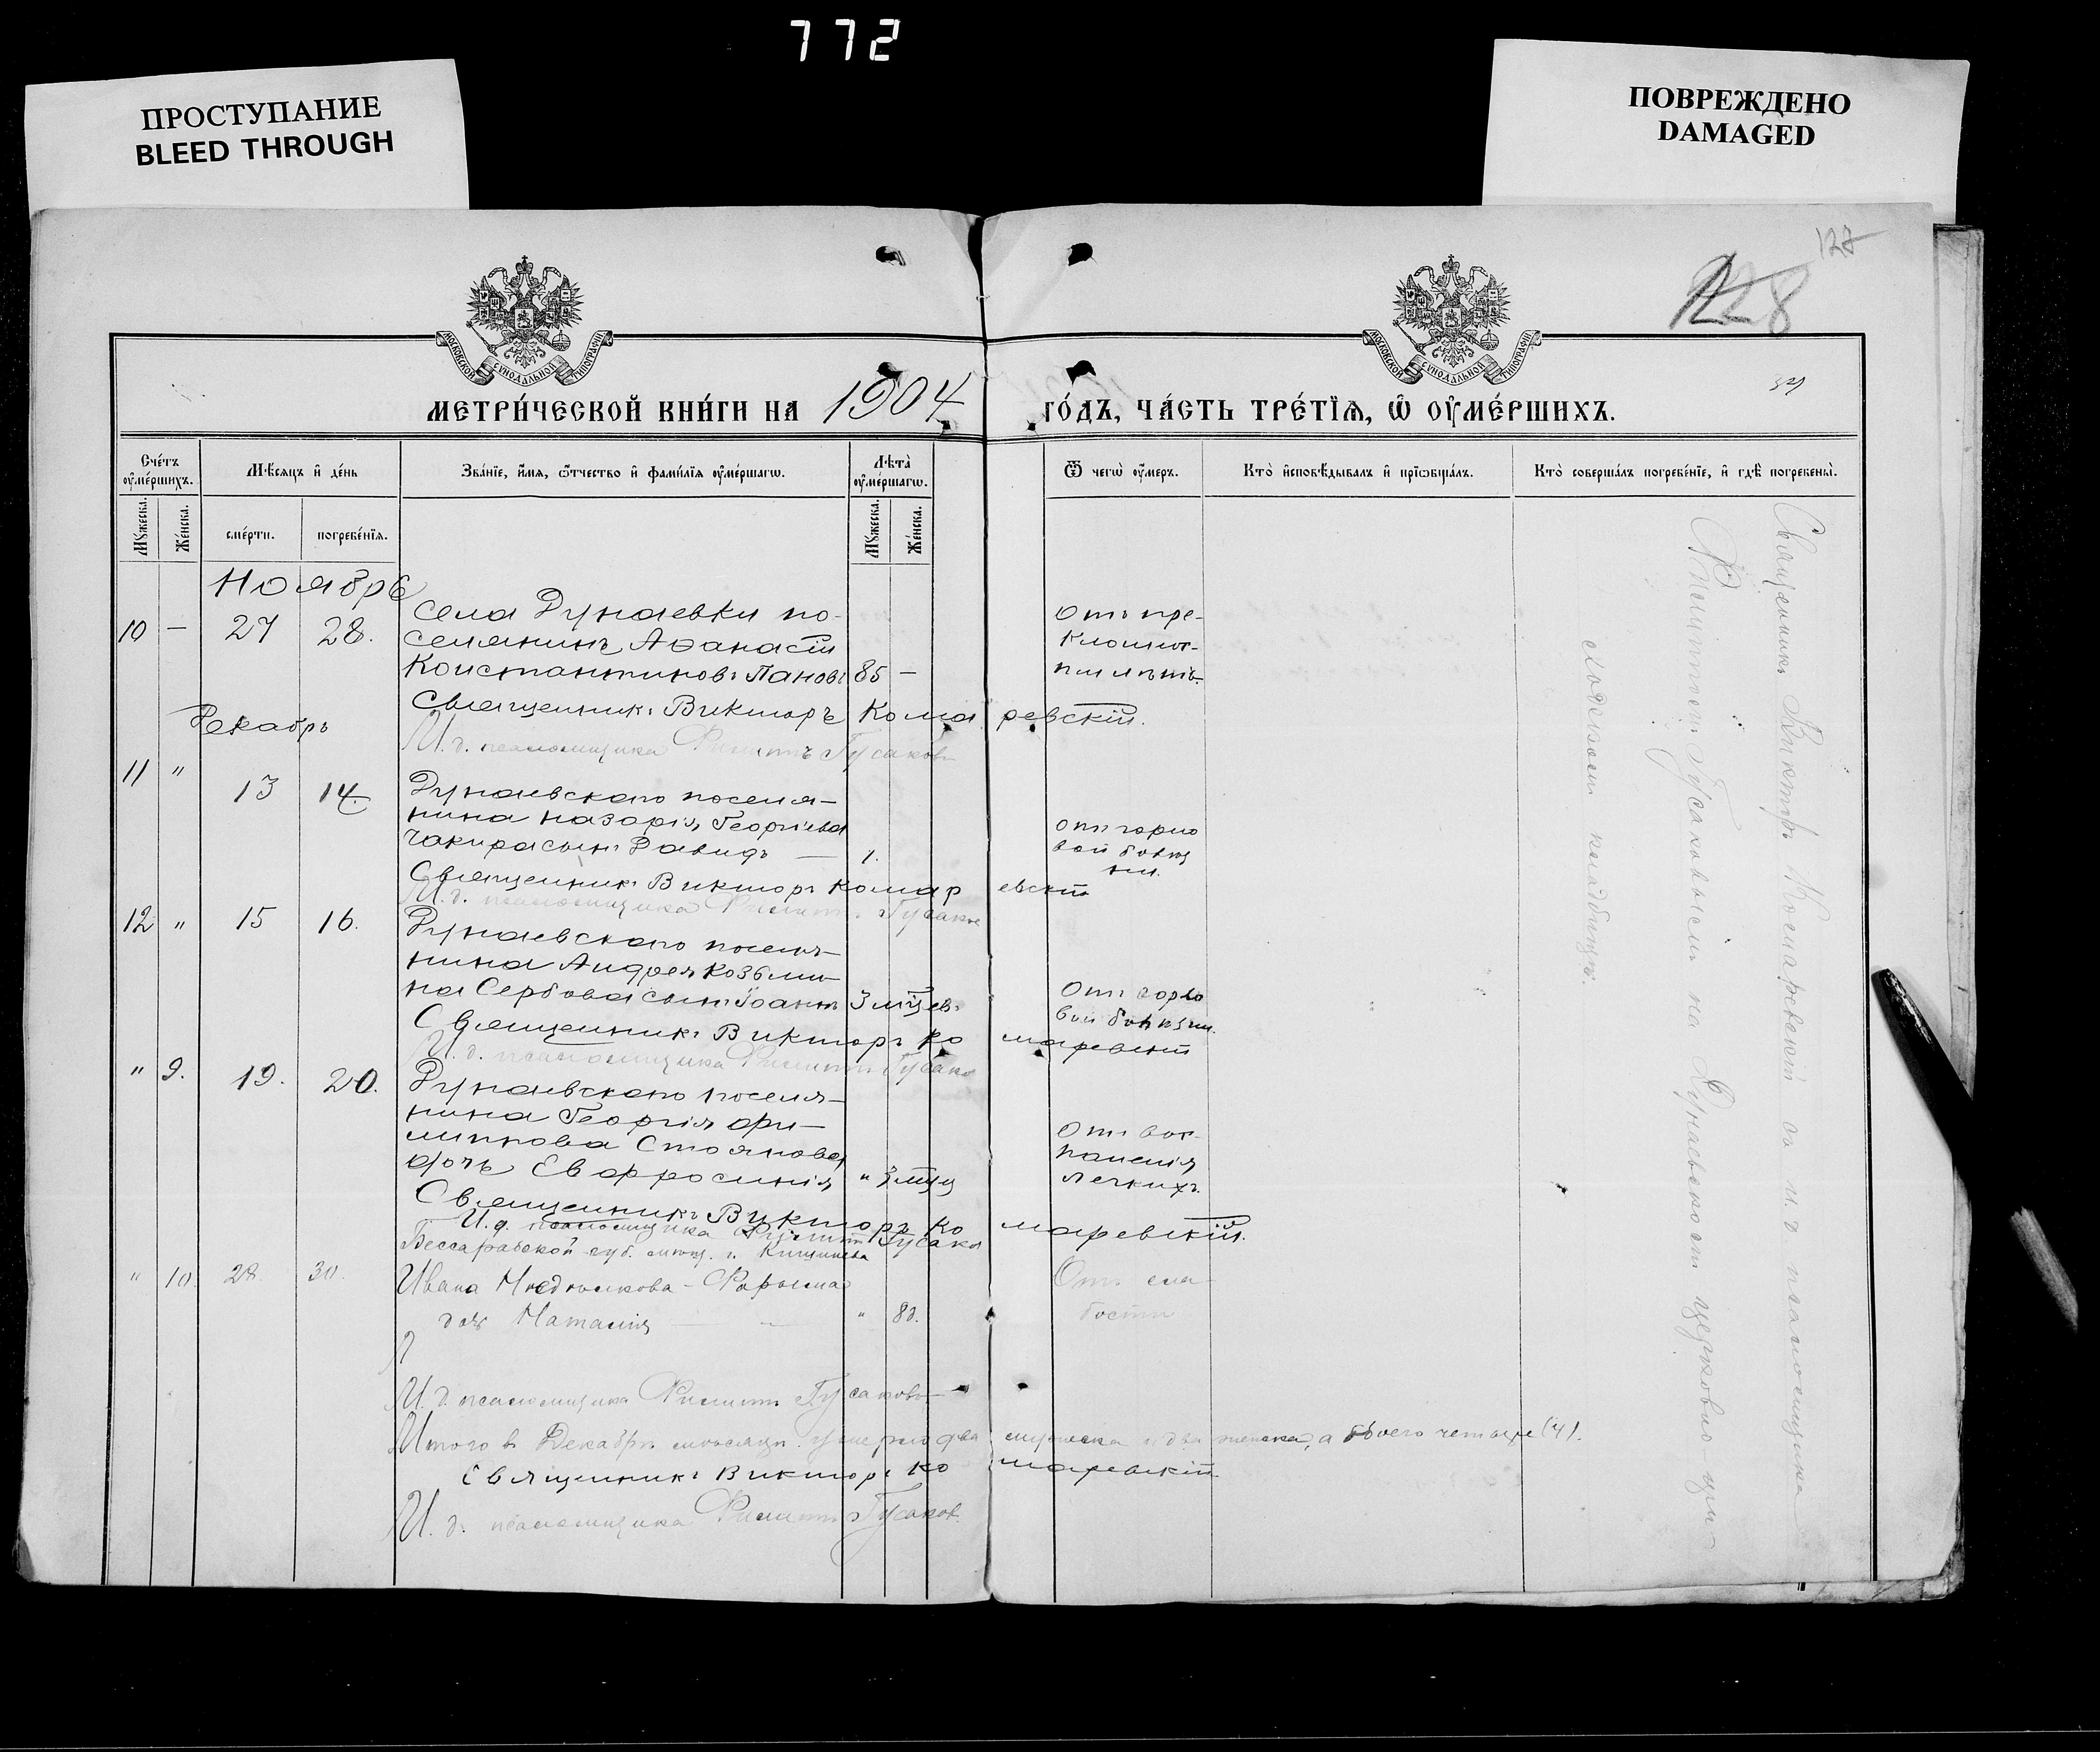 772
ПРОСТУПАНИЕ
BLEED THROUGH
ПОВРЕЖДЕНО
DAMAGED
127
228
МОСКОВСКОЙ СѴНОДАЛЬНОЙ ТИПОГРАФІИ
МОСКОВСКОЙ СѴНОДАЛЬНОЙ ТИПОГРАФІИ
МЕТРИ́ЧЕСКОЙ КНИ́ГИ НА 1904 ГО́ДЪ, ЧА́СТЬ ТРЕ́ТЇѦ, Ѿ ОУ҆МЕ́РШИХЪ.
Сче́тъ оу҆ме́ршихъ.
Мѣ́сяцъ и҆ де́нь
Зва́нїе, и҆́мя, ѻ҆́тчество и҆ фами́лїя оу҆ме́ршагѡ.
Лѣ́та̀ оу҆ме́ршагѡ.
Ѿ чегѡ̀ оу҆́меръ.
Кто̀ и҆сповѣ́дывалъ и҆ прїѡбща́лъ.
Кто̀ соверша́лъ погребе́нїе, и҆ гдѣ̀ погребены̀.
Мꙋ́жеска.
Же́нска.
сме́рти.
погребе́нїя.
Мꙋ́жеска.
Же́нска.
Ноябрь
10 — 27 28. села Дунаевки по-
селянинъ Аѳанасій
Константиновъ Пановъ 85 —
Отъ пре-
клонност-
и лѣтъ.
Священникъ Викторъ Комаревскій.
И. д. псаломщика Филиппъ Гусаковъ
Декабрь
11 " 13 14. Дунаевскаго поселя-
нина Назарія Георгіева
Чакира сынъ Давидъ — 1.
отъ горло
вой болѣз
ни.
Священникъ Викторъ Комаревскій
И. д. псаломщика Филиппъ Гусаков
12 " 15 16. Дунаевскаго поселя-
нина Андрея Козьми-
на Сербова сынъ Іоаннъ 3 мѣсяцев.
Отъ горло
вой болѣзни.
Священникъ Викторъ Комаревскій
И. д. псаломщика Филиппъ Гусаков
" 9. 19. 20. Дунаевскаго поселя-
нина Георгія Фи-
липпова Стоянова
дочь Евфросинія " 3 мѣсяц
Отъ вос-
паленія
легкихъ.
Священникъ Викторъ Комаревскій.
И. д. псаломщика Филиппъ Гусаков
Бессарабской губ. мѣщ. г. Кишинева
" 10. 28. 30. Ивана
дочь Наталія — " 8 д.
Отъ сла-
бости
И. д. псаломщика Филиппъ Гусаковъ
Итого въ Декабрѣ мѣсяцѣ умерло два мужеска и два женска, а всего четыре (4).
Священникъ Викторъ Комаревскій.
И. д. псаломщика Филиппъ Гусаков.
Священникъ Викторъ Комаревскій съ и. д. псаломщика
Филиппомъ Гусаковымъ на Дунаевскомъ церковно-при-
ходскомъ кладбищѣ.